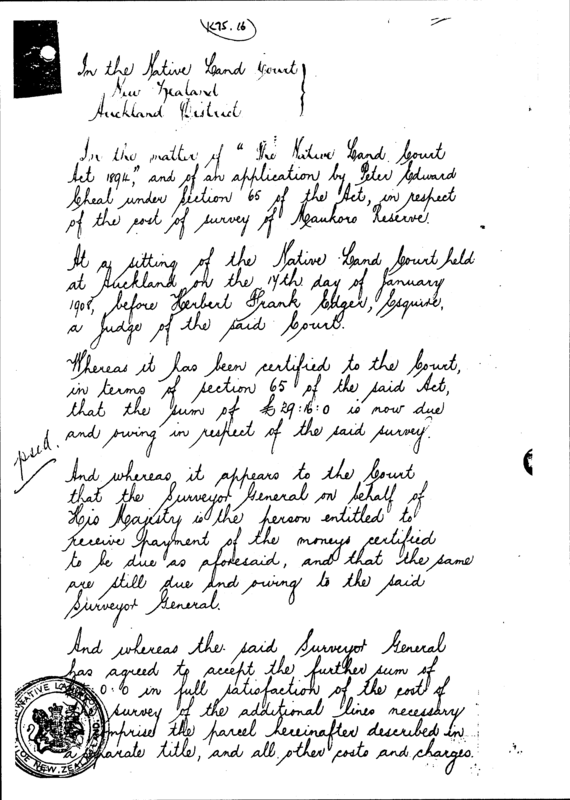 K75.16
In the Native Land Court
New Zealand
Auckland District
In the matter of "The Native Land Court
Act 1894," and of an application by Peter Edward
Cheal under Section 65 of the Act, in respect
of the cost of survey of Maukoro Reserve
At a sitting of the Native Land Court held
at Auckland on the 17th day of January
1908, before Herbert Frank Edger, Esquire,
a Judge of the said Court.
Whereas it has been certified to the Court,
in terms of section 65 of the said Act,
that the sum of £29:16:0 is now due
and owing in respect of the said survey.
And whereas it appears to the Court
that the Surveyor General on behalf of
His Majesty is the person entitled to
receive payment of the moneys certified
to be due as aforesaid, and that the same
are still due and owing to the said
Surveyor General.
And whereas the said Surveyor General
has agreed to accept the further sum of
0:0 in full satisfaction of the cost of
survey of the additional lines necessary
comprise the parcel hereinafter described in
parate title, and all other costs and charges.
NATIVE LAND
OF NEW ZEALAND